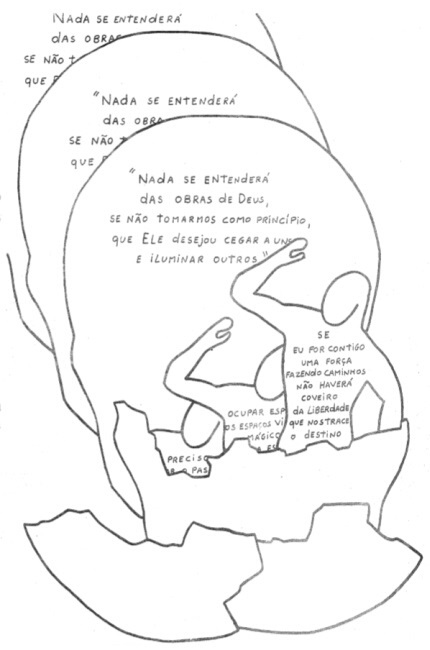 NADA SE ENTENDERÁ
DAS OBRAS
SE NÃO
QUE
"NADA SE ENTENDERÁ
DAS OBRA
SE NÃO
QUE
"NADA SE ENTENDERÁ
DAS OBRAS DE DEUS,
SE NÃO TOMARMOS COMO PRINCÍPIO,
QUE ELE DESEJOU CEGAR A UNS
E ILUMINAR OUTROS"
SE
EU POR CONTIGO
UMA FORÇA
FAZENDO CAMINHOS
NÃO HAVERÁ
COVEIRO
DA LIBERDADE
QUE NOS TRACE
O DESTINO
OCUPAR ESP
OS ESPAÇOS VI
MÁGICO
PRECISO
PAS